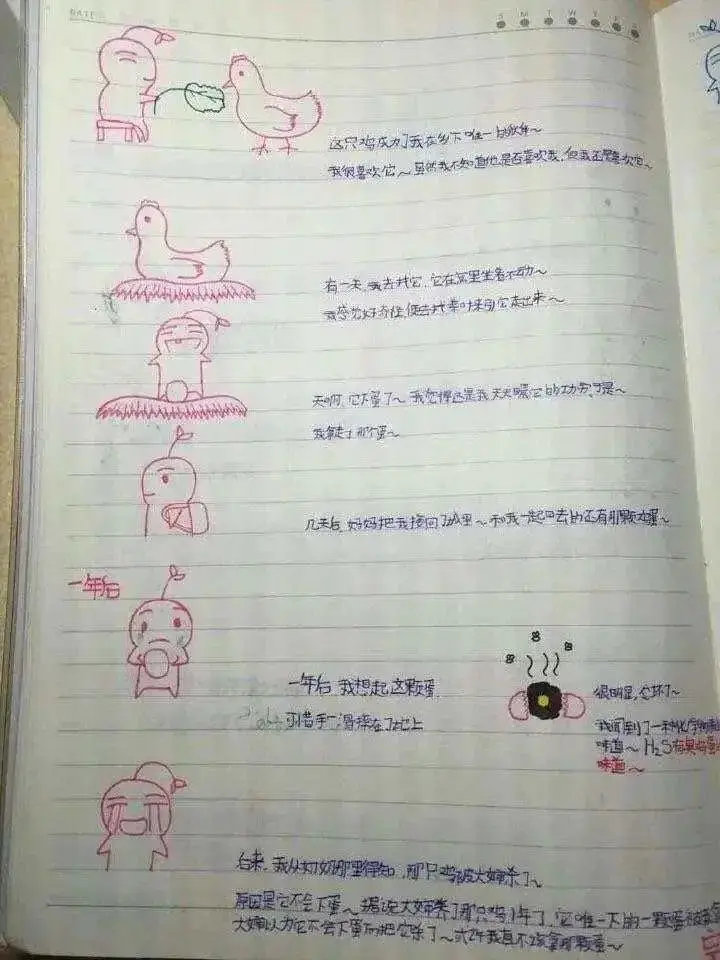 DATE
S M T W T F S
这只鸡成为了我在乡下唯一的伙伴~
我很喜欢它~虽然我不知道他是否喜欢我,但我还是喜欢它~
有一天,我去找它,它在窝里坐着不动~
我感觉好奇怪,便去找菜叶来引它走出来~
天啊,它下蛋了~我觉得这是我天天喂它的功劳,于是~
我拿走了那个蛋~
几天后,妈妈把我接回了城里~和我一起回去的还有那颗鸡蛋~
一年后
一年后,我想起这颗蛋,
可惜手一滑摔在了地上
很明显,它坏了~
我闻到了一种化学物质
味道~H₂S有臭鸡蛋
味道~
后来,我从奶奶那里得知,那只鸡被大婶杀了~
原因是它不会下蛋~据说大婶养了那只鸡1年了,它唯一下的一颗蛋被我拿
大婶以为它不会下蛋而把它杀了~或许我真不该拿那颗蛋~